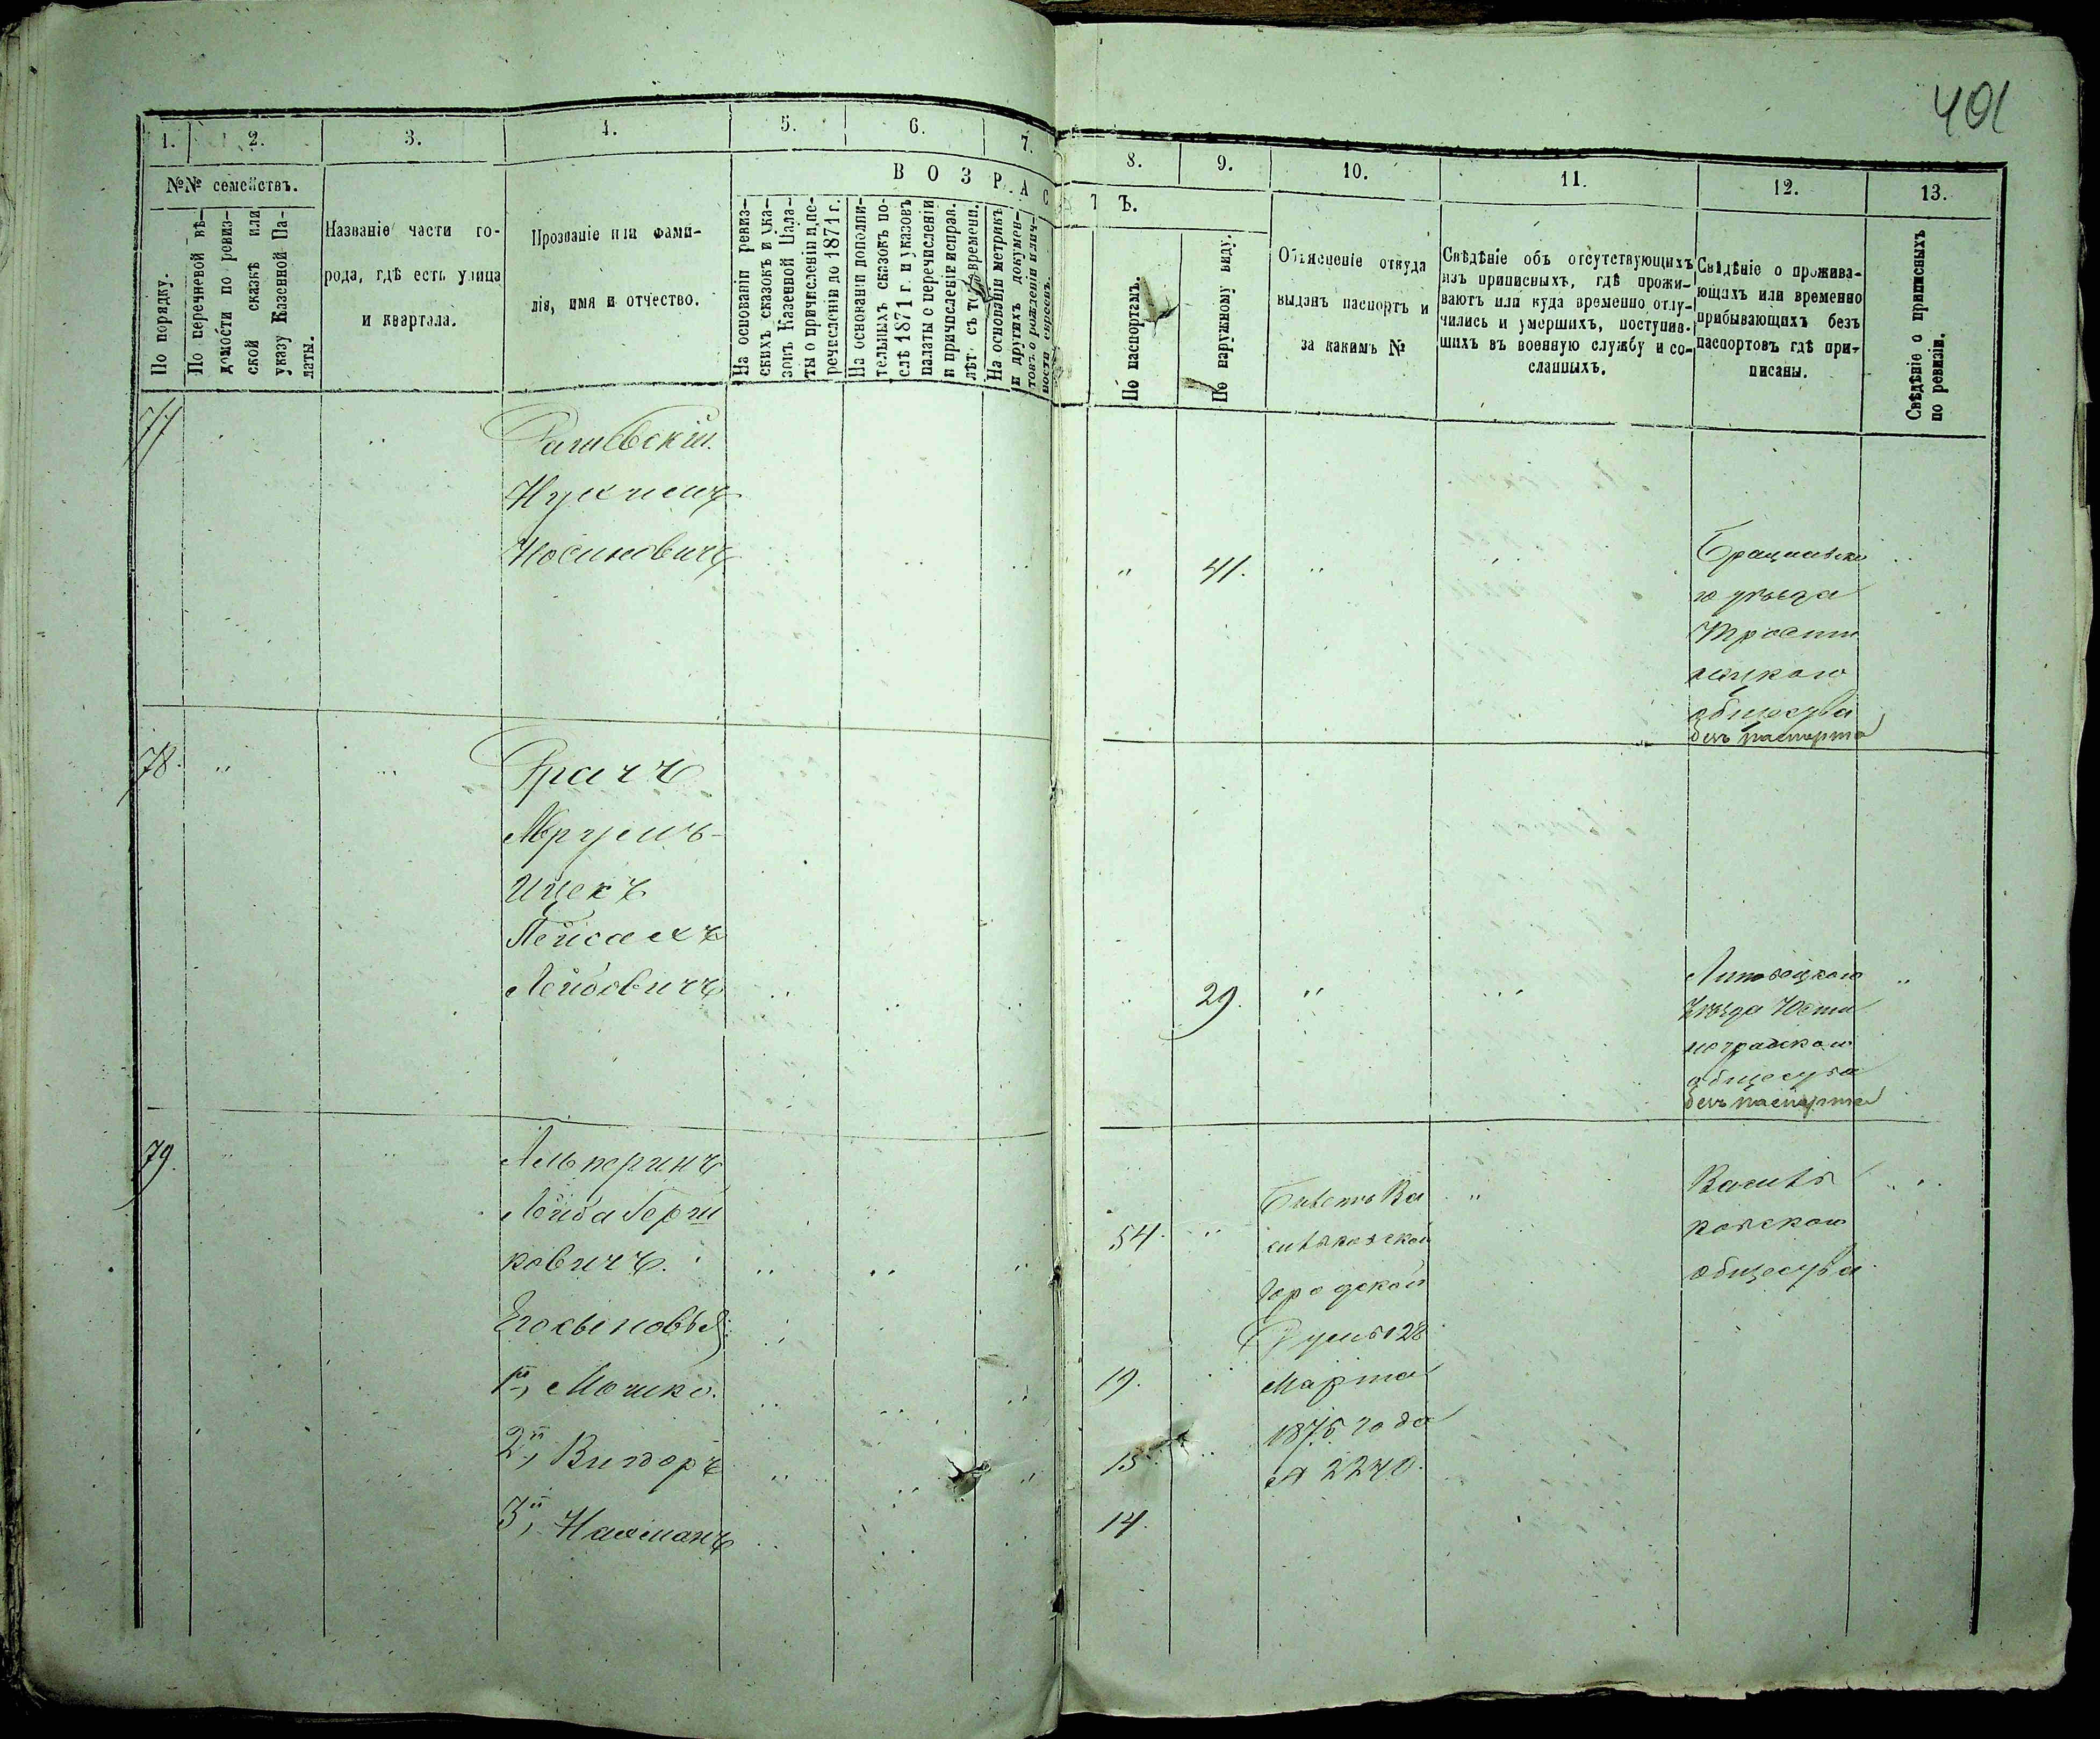 401
1. 2. 3. 4. 5. 6. 7.
8. 9. 10. 11. 12. 13.
№№ семействъ.
По порядку.
По перечневой вѣ-
домости по ревиз-
ской сказкѣ или
указу Казенной Па-
латы.
Названіе части го-
рода, гдѣ есть улица
и квартала.
Прозваніе или фами-
лія, имя и отчество.
ВОЗРАС
ТЪ.
На основаніи ревиз-
скихъ сказокъ и ука-
зовъ Казенной Пала-
ты о причисленіи и пе-
речисленіи до 1871 г.
На основаніи дополни-
тельныхъ сказокъ по-
слѣ 1871 г. и указовъ
палаты о перечисленіи
и причисленіе исправ.
лѣтъ съ того времени.
На основаніи метрикъ
и другихъ докумен-
товъ о рожденіи и лич-
ности евреевъ.
По паспортамъ.
По наружному виду.
Объясненіе откуда
выданъ паспортъ и
за какимъ №
Свѣдѣніе объ отсутствующихъ
изъ приписныхъ, гдѣ прожи-
ваютъ или куда временно отлу-
чились и умершихъ, поступив-
шихъ въ военную службу и со-
сланныхъ.
Свѣдѣніе о прожива-
ющихъ или временно
прибывающихъ безъ
паспортовъ гдѣ при-
писаны.
Свѣдѣніе о приписныхъ
по ревизіи.
77
Рашевскій
Нухимъ
Іосиповичъ
41.
Брацлавска
го уѣзда
Трости
нецкаго
общества
безъ паспорта
78.
Врачъ
Сруль-
Ицекъ
Пейсахъ
Лейбовичъ
29.
Липовецкаго
уѣзда Юсти
нградскаго
общества
безъ паспорта
79.
Альперинъ
Лейба Герш
ковичъ.
54.
Билетъ Ва
сильковской
Городской
Думы 28
Марта
1875 года
№ 2240.
Василь
ковскаго
общества.
Его сыновья:
1й, Мошко.
19.
2й, Вигдоръ
15.
3й, Нахманъ
14.